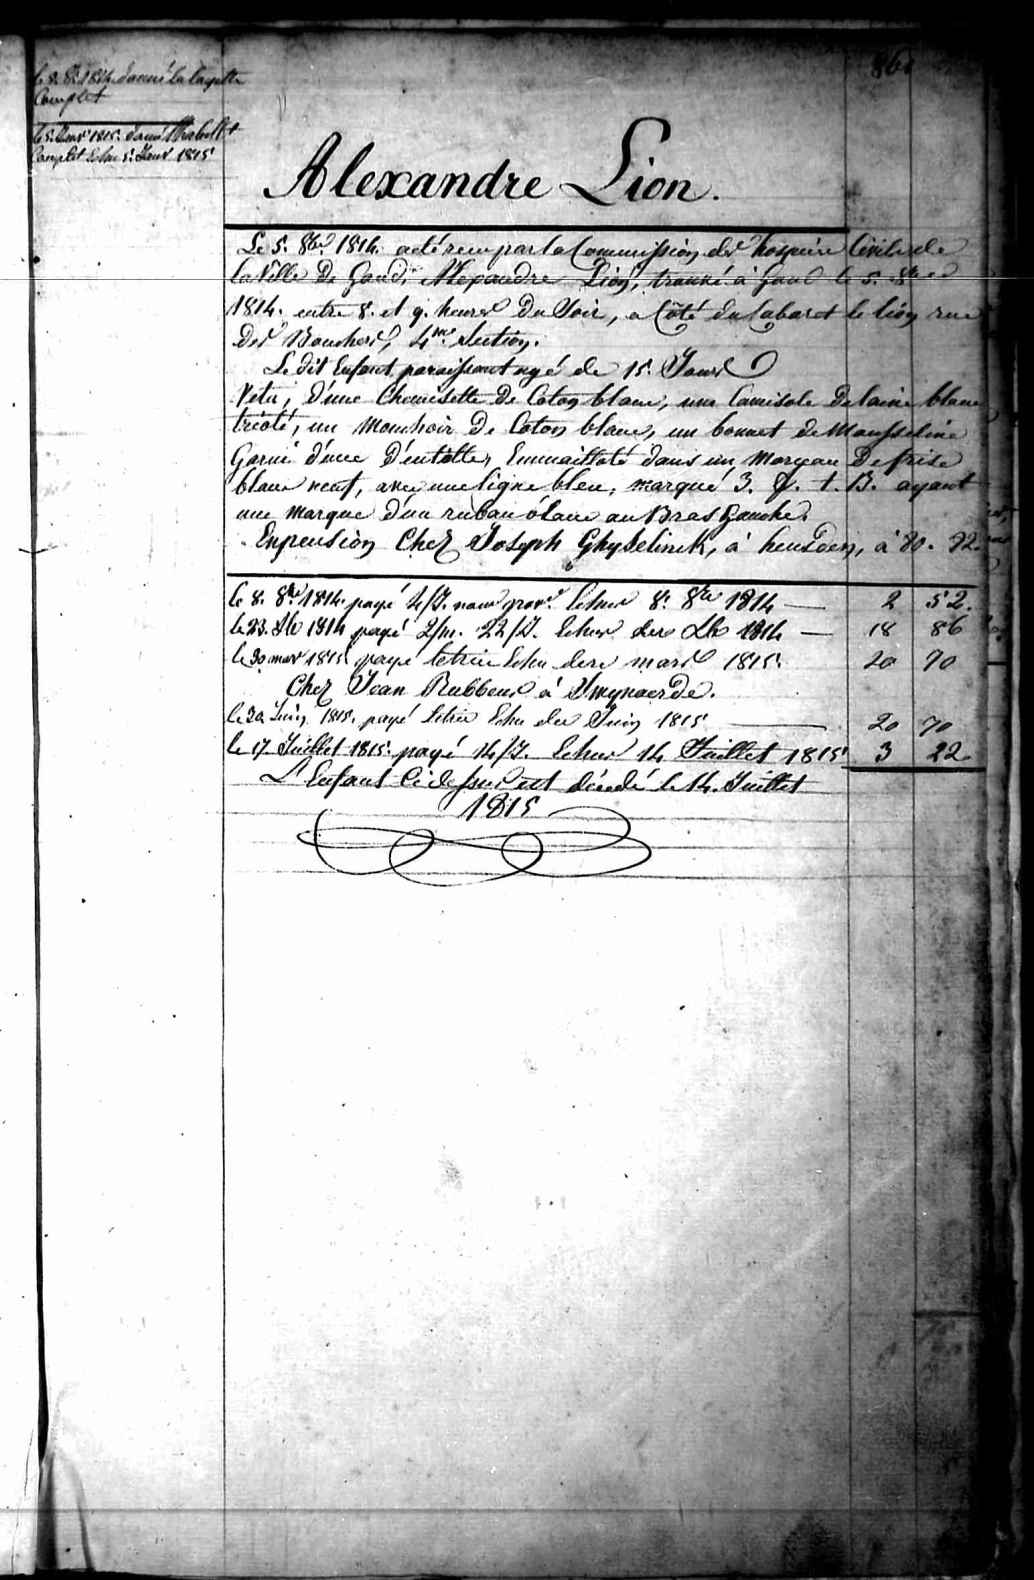 86
le 8. 8bre 1814. donné la layette
Complet
le 5. Janr 1815. donné
Complet Echu 5. Janr 1815
Alexandre Lion.
Le 5. 8bre 1814. a été reçu par la Commission des hospices Civils de
la Ville De Gand, Alexandre Lion, trouvé à Gand le 5. 8bre
1814. entre 8. et 9. heures Du Soir, a Côté du Cabaret le lion rue
Des Bouchers, 4me section.
Le dit Enfant paraissant agé de 15. Jours
Vetu, d'une Chemisette De Coton blanc, une Camisole De laine blanc
tricoté, un Mouchoir De Coton blanc, un bonnet de Mousseline
Garni d'une D'entelle, Emmailloté dans un Morceau De frise
blanc neuf, avec une ligne bleu, marqué 3. t. B. ayant
une marque d'un ruban blanc au Bras Gauche.
Enpension Chez Joseph Ghyselinck, à heusden, à 80. 72.
le 8. 8bre 1814. payé 4/J. Echus 8. 8bre 1814 2 52.
le 23. Xb 1814 payé 2/m. 22/J. Echus der Xb 1814 18 86
le 30 mars 1815 payé letrim Echu dere mars 1815. 20 70
Chez Jean Rubbens à Swynaerde.
le 30 Juin 1815. payé letrim Echu der Juin 1815 20 70
le 17 Juillet 1815. payé 14/J. Echus 14 Juillet 1815 3 22
L'Enfant Cidessus est décédé le 14. Juillet
1815